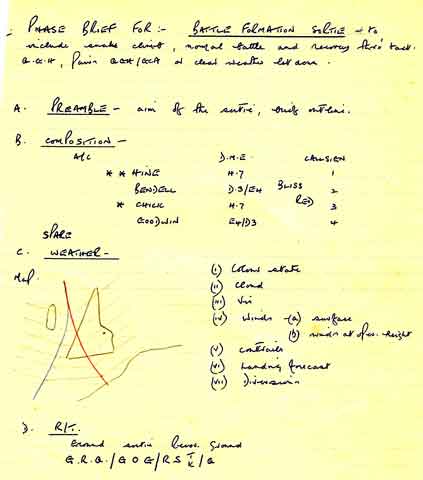 PHASE BRIEF FOR :- BATTLE FORMATION SORTIE - to
include snake climb, normal battle and recovery thro' tacl.
Q.G.H, Pairs QGH/GCA or clear weather let down.
A. PREAMBLE - aim of the sortie, brief outline.
B. COMPOSITION -
A/C D.M.E. CALLSIGN
** HINE H.7 1
BENDELL D.3/E4 BLISS 2
* CHICK H.7 RED 3
GOODWIN E4/D3 4
SPARE
C. WEATHER -
Map.
(i) Colour state
(ii) Cloud
(iii) Vis
(iv) Winds - (a) surface
(b) winds at height
(v) contrails
(vi) Landing forecast
(vii) Diversion
D. R/T.
Ground sortie Ground
G.R.Q./G O G/R S T/K/Q